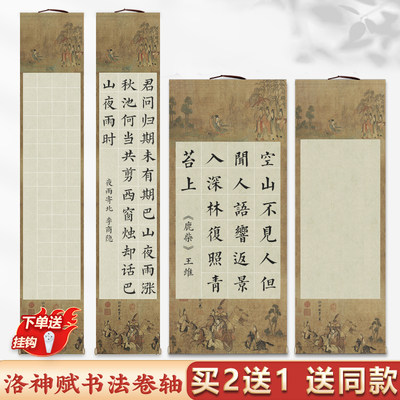 君问归期未有期巴山夜雨涨
秋池何当共剪西窗烛却话巴
山夜雨时
夜雨寄北 李商隐
空山不見人但
聞人語響返景
入深林復照青
苔上
《鹿柴》王维
下单送
挂钩
洛神赋书法卷轴
买2送1 送同款